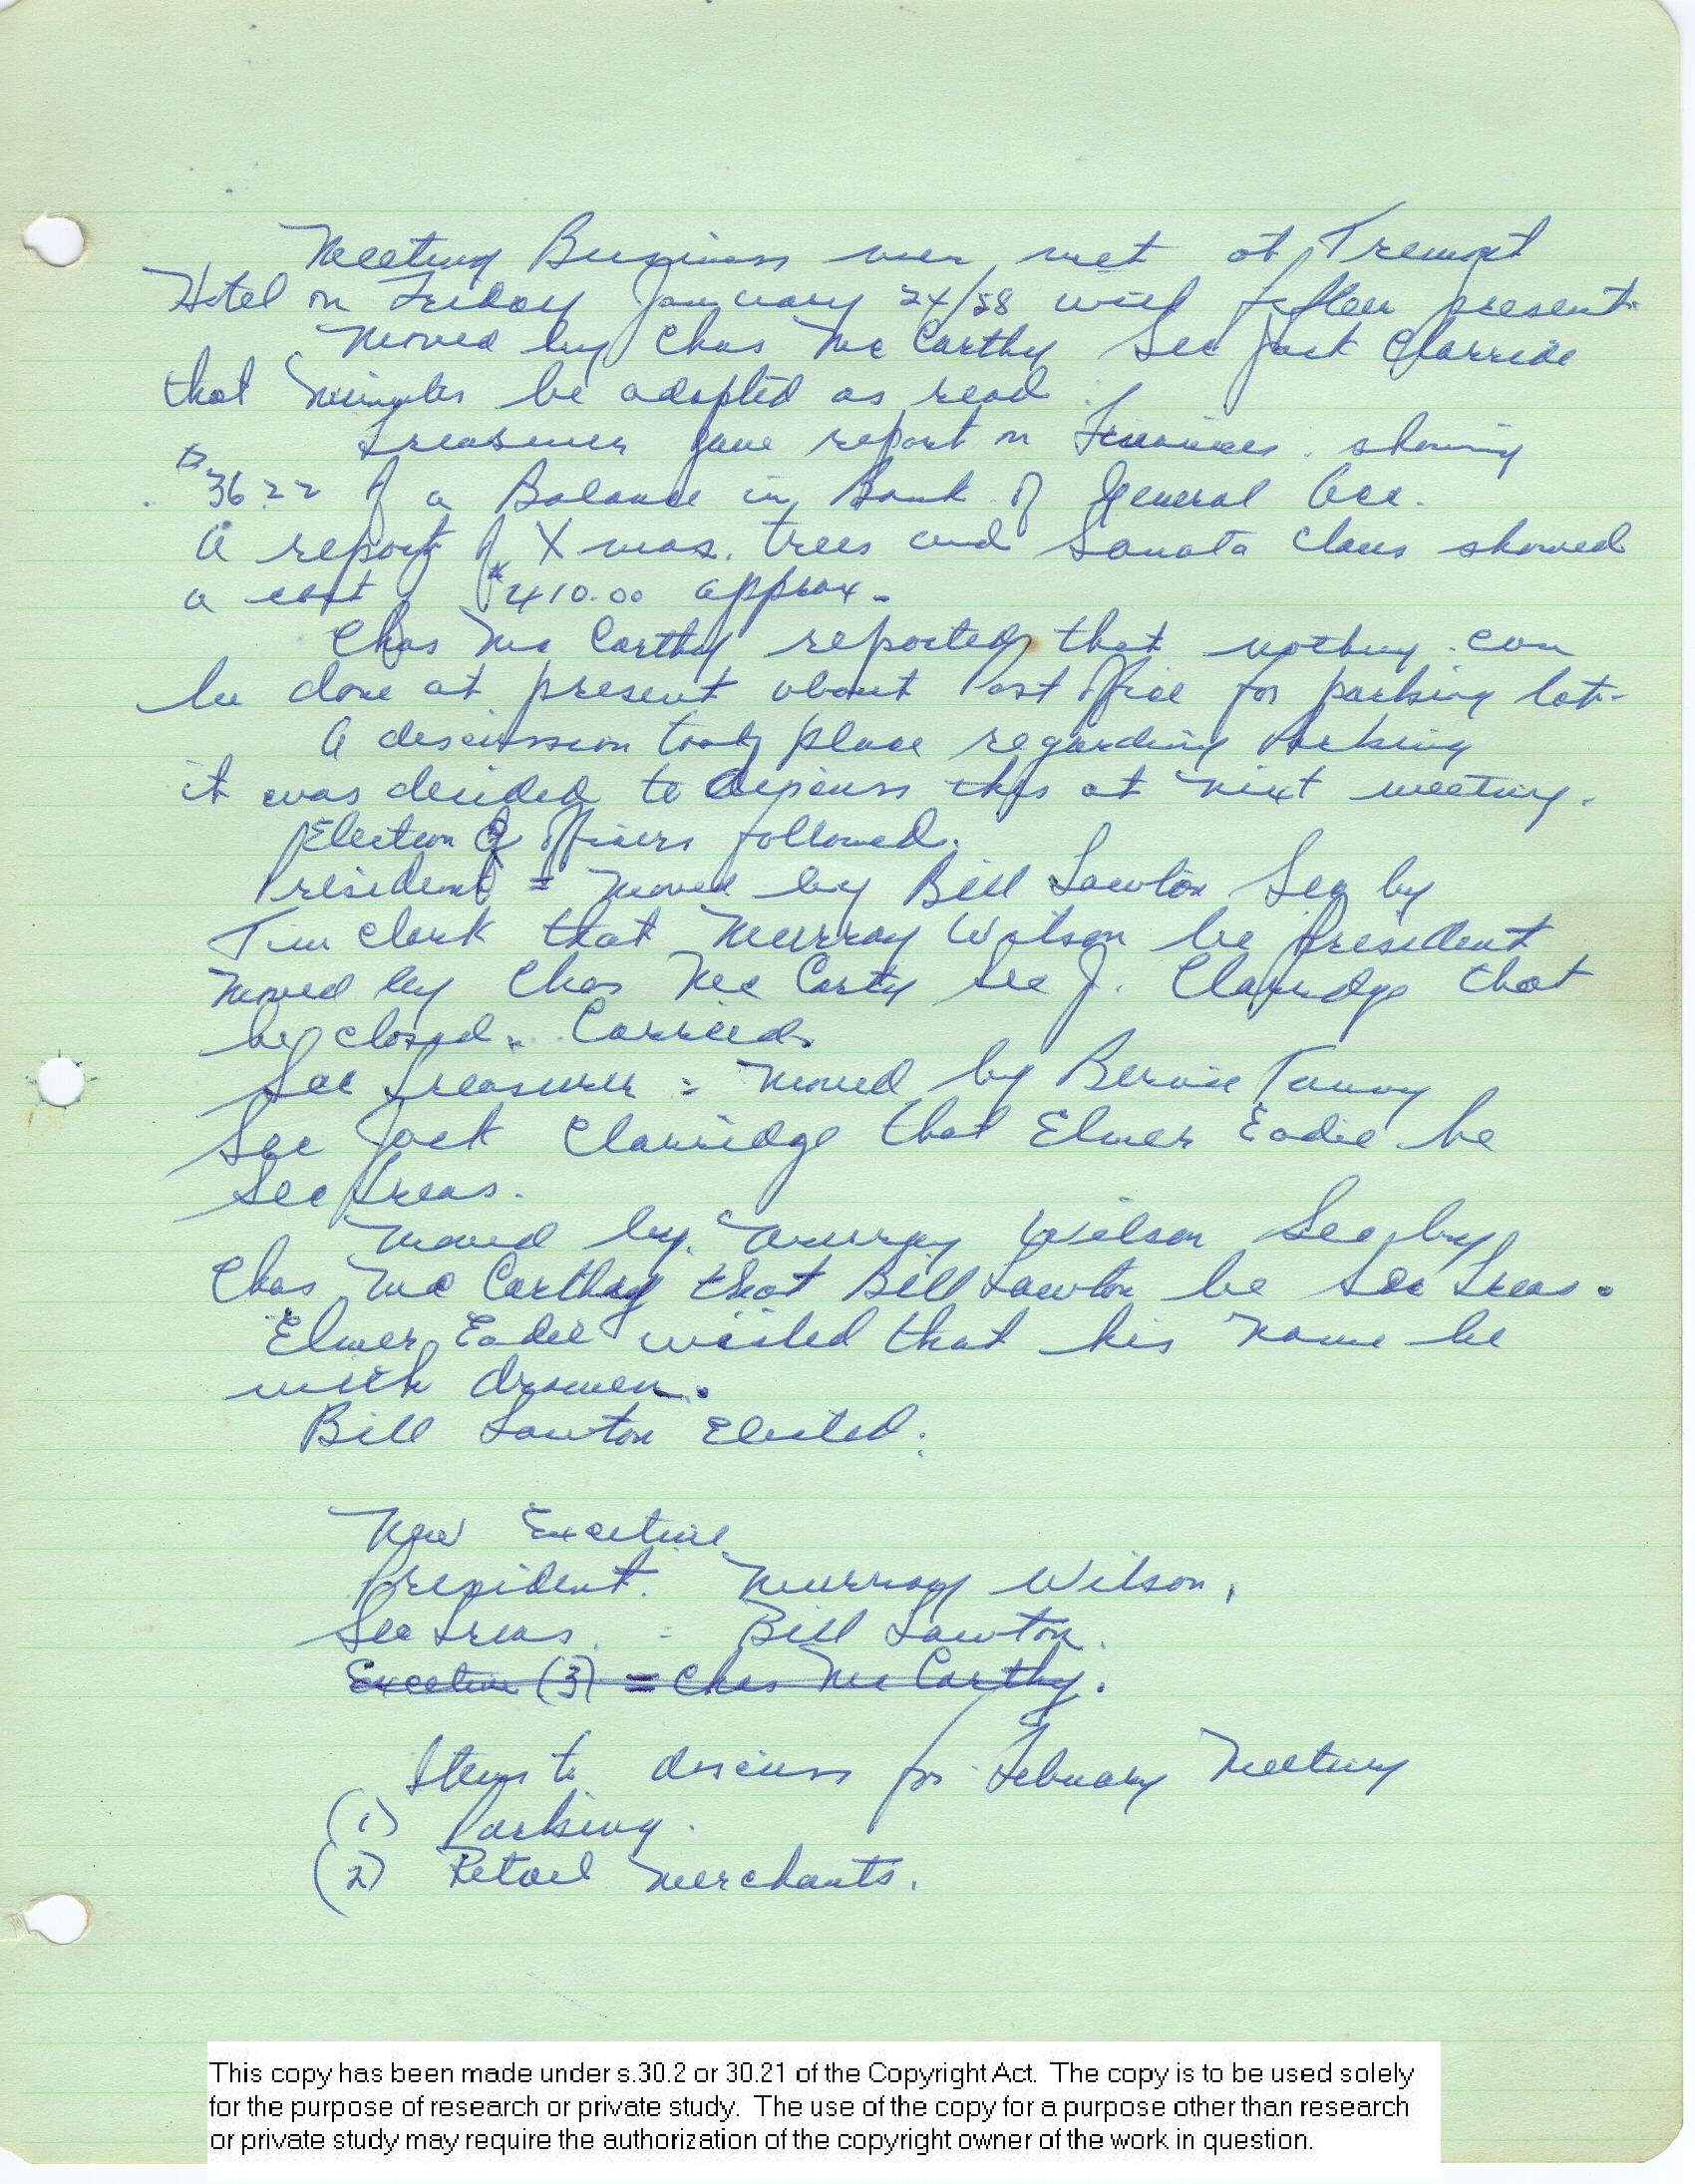 Meeting Business men met at Tremont
Hotel on Friday January 24/58 with fifteen present.
Moved by Chas Mc Carthy Sec Jack Clarride
that minutes be adopted as read.
Treasurer gave report on Finances. showing
$36.22 of a Balance in Bank of General Acc.
A report of Xmas. trees and Sanata Claus showed
a cost of $410.00 approx.
Chas Mc Carthy reported that nothing can
be done at present about Post Office for parking lot.
A descussion took place regarding Parking
it was decided to Discuss this at next meeting.
Election of Officers followed.
President = moved by Bill Lawton Sec by
Tim Clark that Murray Wilson be President
moved by Chas Mc Carty Sec J. Clarridge that
be closed. Carried.
Sec Treasurer = moved by Bernie
Sec Jack Clarridge that Elmer Eadie be
Sec Treas.
Moved by Murray Wilson Sec by
Chas Mc Carthy that Bill Lawton be Sec Treas.
Elmer Eadie wished that his name be
with drawen.
Bill Lawton Elected.
New Excetive
President. Murray Wilson,
Sec Treas. = Bill Lawton.
Excetive (3) = Chas Mc Carthy.
Items to discuss for Febuary Meeting
(1) Parking.
(2) Retail Merchants.
This copy has been made under s.30.2 or 30.21 of the Copyright Act. The copy is to be used solely
for the purpose of research or private study. The use of the copy for a purpose other than research
or private study may require the authorization of the copyright owner of the work in question.